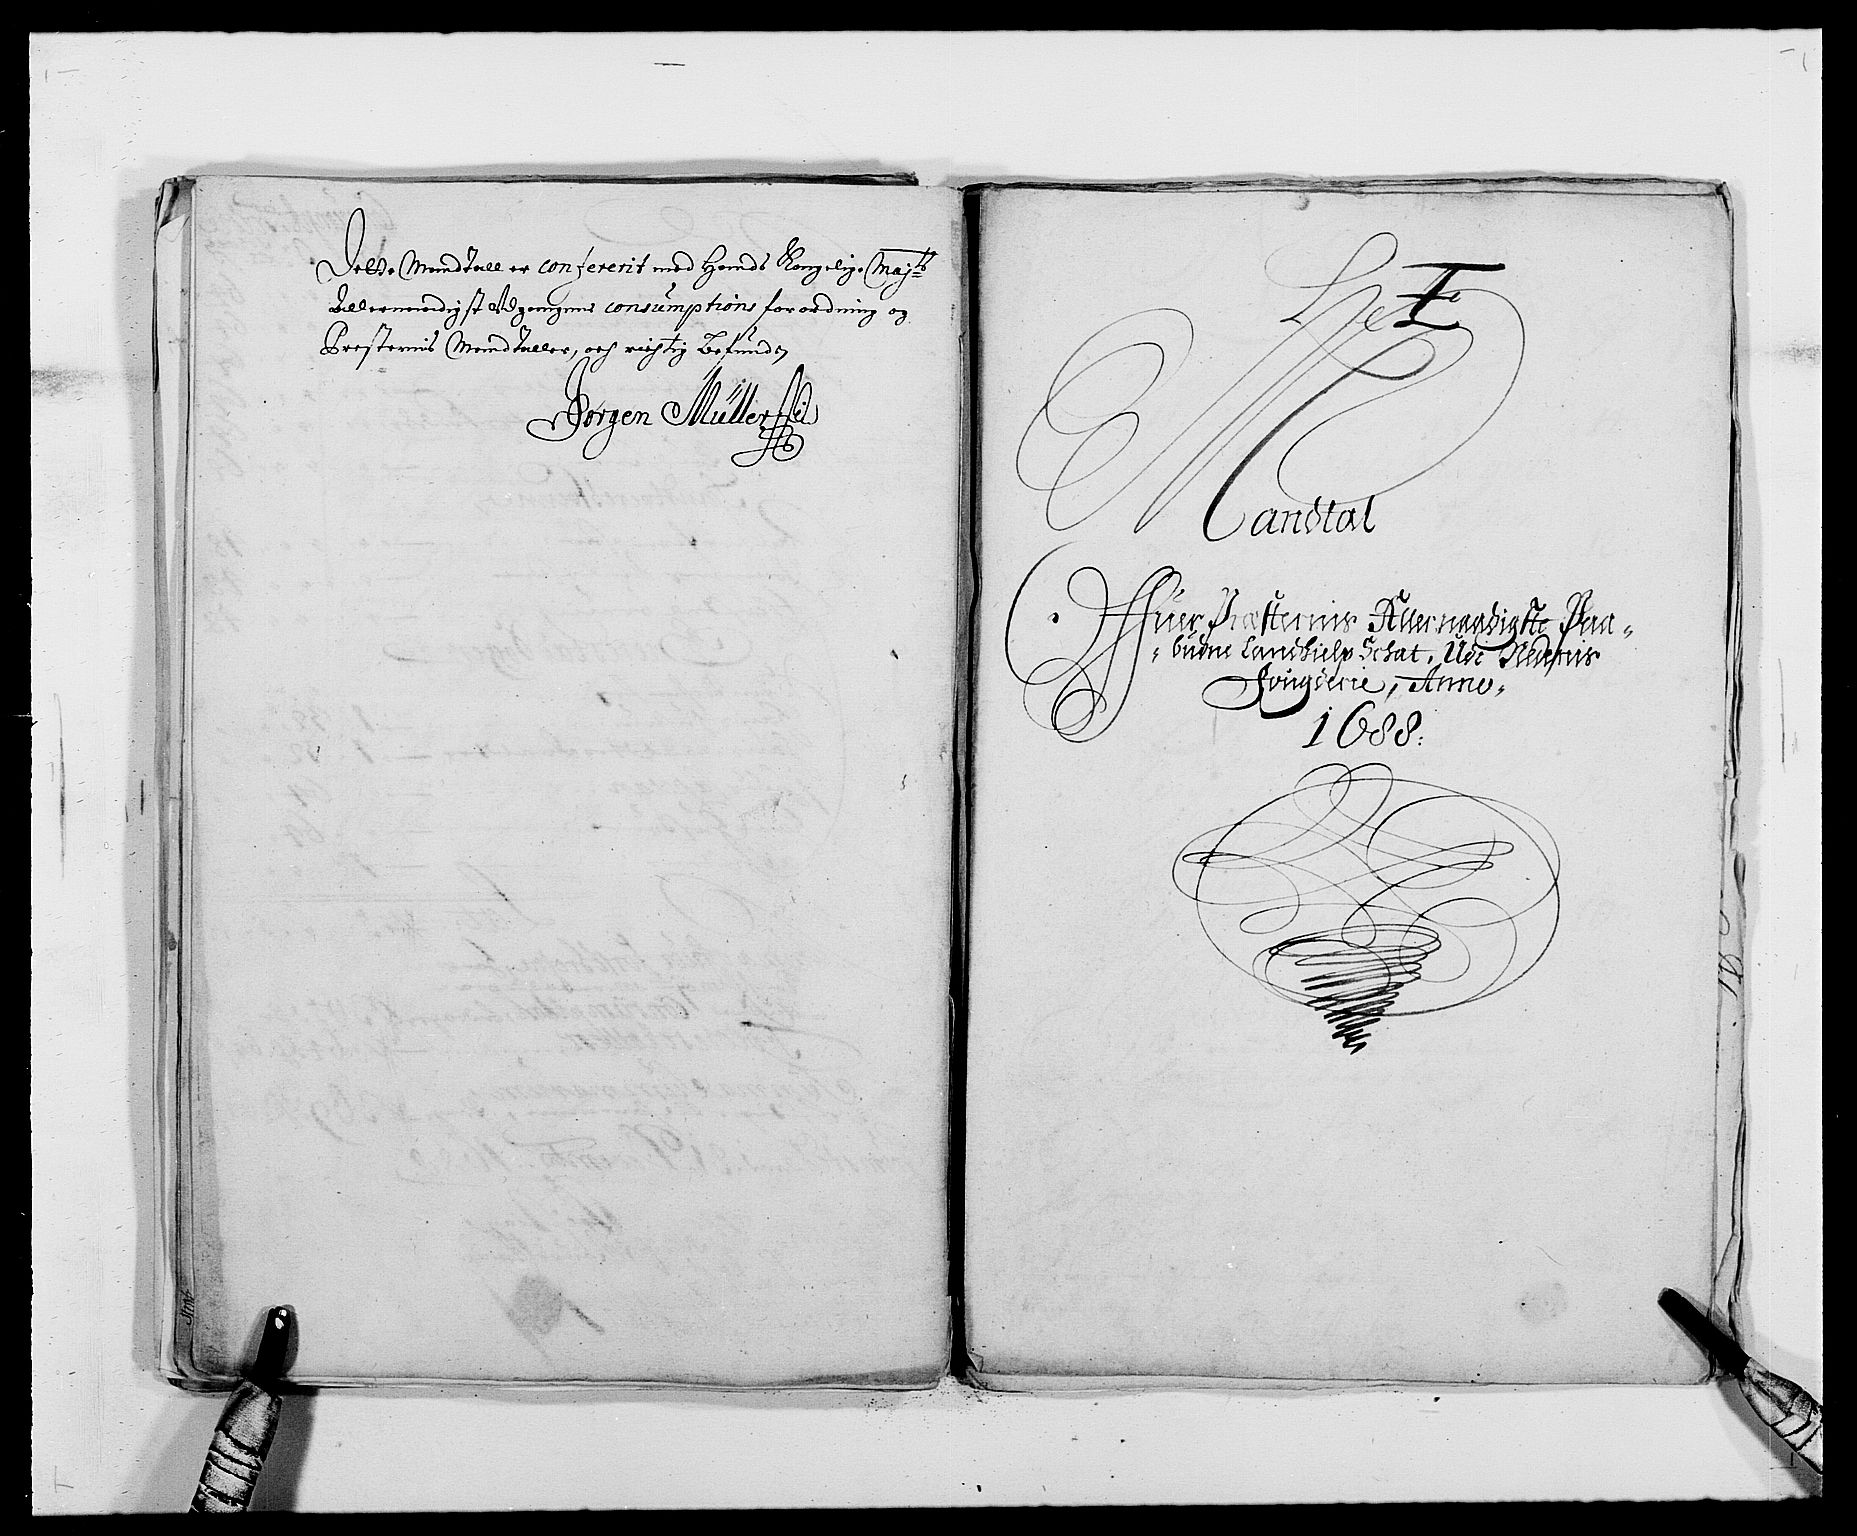 Dette Mandtall er confererit med Hands Kongelige Mayts
Allernaadigst Udgangne consumptions forordning og
Presternis Mandtaller, och richtig befunden
Jørgen Müller
Mandtal
Offuer Præsternis Allernaadigste Paa-
-budne Landhielp Schat, Udi Nedenis
Fougderie, Anno
1688: